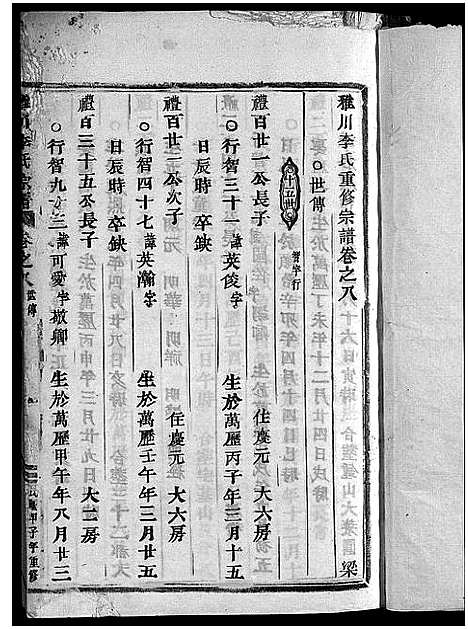 雅川李氏重修宗譜卷之八 梁
○世傳
十五世 智字行
禮百廿一公長子 住慶元 大六房
○行智三十一 諱英俊 字 生於萬歷丙子年三月十五
日辰時 卒缺
禮百廿二公次子 住慶元 大六房
○行智四十七 諱英瀚 字 生於萬歷壬午年三月廿五
日辰時 卒缺
禮百三十五公長子 大二房
○行智九十三 諱可愛 字敬卿 生於萬歷甲午年八月廿三
雅川李氏宗譜 卷之八 世傳 民國甲子年重修